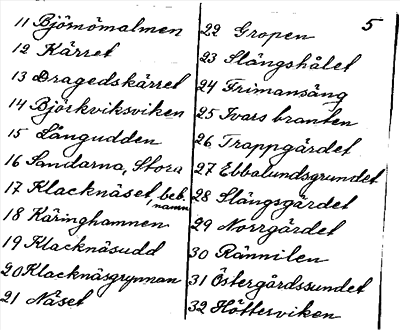 5
11 Björnömalmen
12 Kärret
13 Dragedskärret
14 Björkviksviken
15 Långudden
16 Sandarna, Stora
17 Klacknäset, beb.
namn
18 Käringhamnen
19 Klacknäsudd
20 Klacknäsgrynnan
21 Näset
22 Gropen
23 Stängshålet
24 Frimansäng
25 Ivars branten
26 Trappgärdet
27 Ebbalundsgrundet
28 Stängsgärdet
29 Norrgärdet
30 Rännilen
31 Östergårdssundet
32 Höttersviken